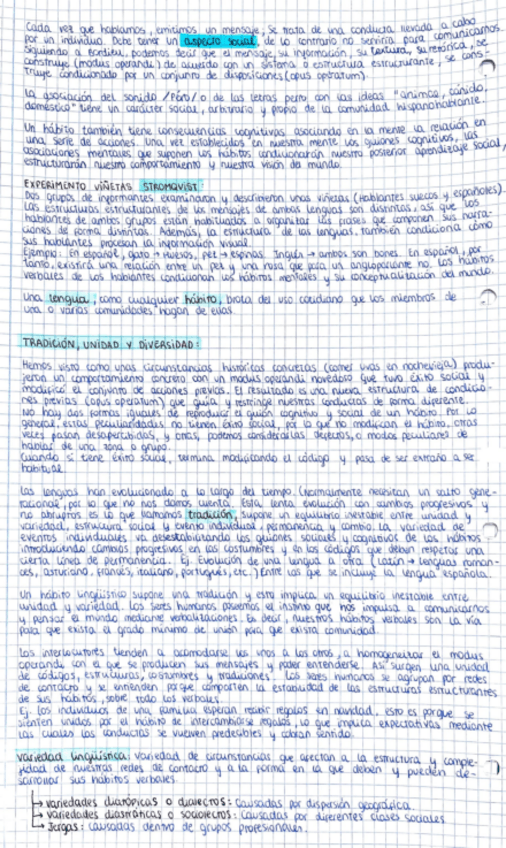 Cada vez que hablamos, emitimos un mensaje, se trata de una conducta llevada a cabo
por un individuo. Debe tener un aspecto social, de lo contrario no serviría para comunicarnos
Siguiendo a Bordieu, podemos decir que el mensaje, su información, su textura, su retórica, se
construye (modus operandi) de acuerdo con un sistema o estructura estructurante, se cons-
truye condicionado por un conjunto de disposiciones (opus operatum).
La asociación del sonido /Pérro/ o de las letras perro con las ideas "animal, cánido,
doméstico" tiene un carácter social, arbitrario y propio de la comunidad hispanohablante.
Un hábito también tiene consecuencias cognitivas asociando en la mente la relación en
una serie de acciones. Una vez establecidos en nuestra mente los guiones cognitivos, las
asociaciones mentales que suponen los hábitos condicionarán nuestro posterior aprendizaje social,
estructurarán nuestro comportamiento y nuestra visión del mundo.
EXPERIMENTO VIÑETAS STROMQVIST:
Dos grupos de informantes examinaron y describieron unas viñetas (Hablantes suecos y españoles).
Las estructuras estructurantes de los mensajes de ambas lenguas son distintos, así que los
hablantes de ambos grupos están habituados a organizar las frases que componen sus narra-
ciones de forma distinta. Además, la estructura de las lenguas, también condiciona cómo
sus hablantes procesan la información visual.
Ejemplo: En español, gato → Huesos, pez → espinas. Inglés → ambos son bones. En español, por
tanto, existirá una relación entre un pez y una rosa que para un angloparlante no. Los hábitos
verbales de los hablantes condicionan los hábitos mentales y su conceptualización del mundo.
Una lengua, como cualquier hábito, brota del uso cotidiano que los miembros de
una o varias comunidades hagan de ellas.
TRADICIÓN, UNIDAD Y DIVERSIDAD:
Hemos visto como unas circunstancias históricas concretas (comer uvas en nochevieja) produ-
jeron un comportamiento concreto con un modus operandi novedoso que tuvo éxito social y
modificó el conjunto de acciones previas. El resultado es una nueva estructura de condicio-
nes previas (opus operatum) que guía y restringe nuestras conductas de forma diferente.
No hay dos formas iguales de reproducir el guión cognitivo y social de un hábito. Por lo
general, estas peculiaridades no tienen éxito social, por lo que no modifican el hábito, otras
veces pasan desapercibidas, y otras, podemos considerarlas defectos, o modos peculiares de
hablar de una zona o grupo.
Cuando sí tiene éxito social, termina modificando el código y pasa de ser extraño a ser
habitual.
Las lenguas han evolucionado a lo largo del tiempo. (Normalmente necesitan un salto gene-
racional, por lo que no nos damos cuenta. Esta lenta evolución con cambios progresivos y
no abruptos es lo que llamamos tradición, supone un equilibrio inestable entre unidad y
variedad, estructura social y evento individual, permanencia y cambio. La variedad de
eventos individuales va desestabilizando los guiones sociales y cognitivos de los hábitos
introduciendo cambios progresivos en las costumbres y en los códigos que deben respetar una
cierta línea de permanencia. Ej. Evolución de una lengua a otra (Latín → lenguas roman-
ces, asturiano, francés, italiano, portugués, etc.) Entre las que se incluye la lengua española.
Un hábito lingüístico supone una tradición y esto implica un equilibrio inestable entre
unidad y variedad. Los seres humanos poseemos el instinto que nos impulsa a comunicarnos
y pensar el mundo mediante verbalizaciones. Es decir, nuestros hábitos verbales son la vía
para que exista el grado mínimo de unión para que exista comunidad.
Los interlocutores tienden a acomodarse los unos a los otros, a homogeneizar el modus
operandi con el que se producen sus mensajes y poder entenderse. Así surgen una unidad
de códigos, estructuras, costumbres y tradiciones. Los seres humanos se agrupan por redes
de contacto y se entienden porque comparten la estabilidad de las estructuras estructurantes
de sus hábitos, sobre todo los verbales.
Ej. Los individuos de una familia esperan recibir regalos en navidad, esto es porque se
sienten unidos por el hábito de intercambiarse regalos, lo que implica expectativas mediante
las cuales las conductas se vuelven predecibles y cobran sentido.
Variedad lingüística: variedad de circunstancias que afectan a la estructura y comple-
jidad de nuestras redes de contacto y a la forma en la que deben y pueden de-
sarrollar sus hábitos verbales.
↳ Variedades diatópicas o dialectos: Causadas por dispersión geográfica.
↳ Variedades diastráticas o sociolectos: Causadas por diferentes clases sociales
↳ Jergas: Causadas dentro de grupos profesionales.